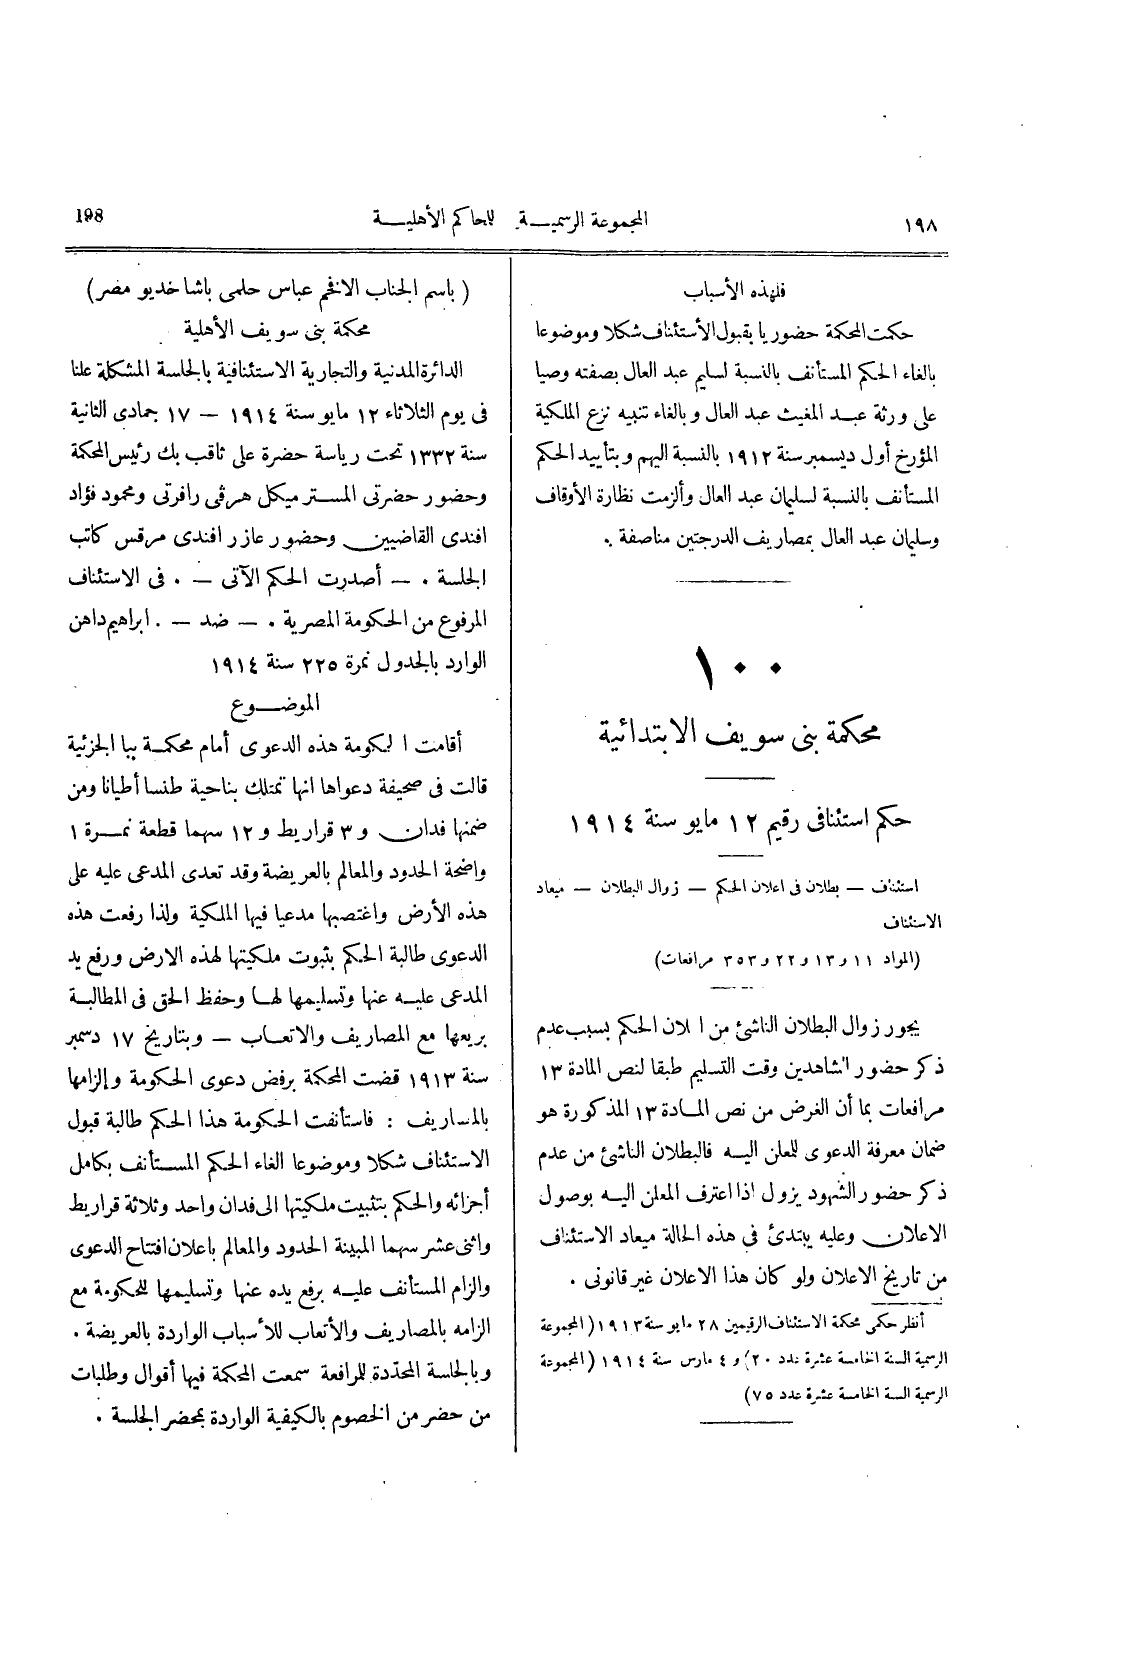 ١٩٨ المجموعة الرسمية للمحاكم الأهلية 198
فلهذه الأسباب
حكمت المحكمة حضوريا بقبول الأستئناف شكلا وموضوعا
بالغاء الحكم المستأنف بالنسبة لسليم عبد العال بصفته وصيا
على ورثة عبد المغيث عبد العال وبالغاء تنبيه نزع الملكية
المؤرخ أول ديسمبر سنة ١٩١٢ بالنسبة اليهم وبتأييد الحكم
المستأنف بالنسبة لسليمان عبد العال وألزمت نظارة الأوقاف
وسليمان عبد العال بمصاريف الدرجتين مناصفة .
١٠٠
محكمة بنى سويف الابتدائية
حكم استئنافى رقيم ١٢ مايو سنة ١٩١٤
استئناف — بطلان فى اعلان الحكم — زوال البطلان — ميعاد
الاستئناف
(المواد ١١ و١٣ و٢٢ و٣٥٣ مرافعات)
يجوز زوال البطلان الناشئ من ا لان الحكم بسبب عدم
ذكر حضور الشاهدين وقت التسليم طبقا لنص المادة ١٣
مرافعات بما أن الغرض من نص المادة ١٣ المذكورة هو
ضمان معرفة الدعوى للمعلن اليه فالبطلان الناشئ من عدم
ذكر حضور الشهود يزول اذا اعترف المعلن اليه بوصول
الاعلان وعليه يبتدئ فى هذه الحالة ميعاد الاستئناف
من تاريخ الاعلان ولو كان هذا الاعلان غير قانونى .
أنظر حكمى محكمة الاستئناف الرقيمين ٢٨ مايو سنة ١٩١٣ (المجموعة
الرسمية السنة الخامسة عشرة عدد ٢٠) و ٤ مارس سنة ١٩١٤ (المجموعة
الرسمية السنة الخامسة عشرة عدد ٧٥)
( باسم الجناب الافخم عباس حلمى باشا خديو مصر)
محكمة بنى سويف الأهلية
الدائرة المدنية والتجارية الاستئنافية بالجلسة المشكلة علنا
فى يوم الثلاثاء ١٢ مايو سنة ١٩١٤ — ١٧ جمادى الثانية
سنة ١٣٣٢ تحت رياسة حضرة على ثاقب بك رئيس المحكمة
وحضور حضرتى المستر ميكل هرفى رافرتى ومحمود فؤاد
افندى القاضيين وحضور عازر افندى مرقس كاتب
الجلسة . — أصدرت الحكم الآتى — . فى الاستئناف
المرفوع من الحكومة المصرية . — ضد — . ابراهيم داهن
الوارد بالجدول نمرة ٢٢٥ سنة ١٩١٤
الموضوع
أقامت ا لحكومة هذه الدعوى أمام محكمة ببا الجزئية
قالت فى صحيفة دعواها انها تمتلك بناحية طنسا أطيانا ومن
ضمنها فدان و ٣ قراريط و ١٢ سهما قطعة نمرة ١
واضحة الحدود والمعالم بالعريضة وقد تعدى المدعى عليه على
هذه الأرض واغتصبها مدعيا فيها الملكية ولذا رفعت هذه
الدعوى طالبة الحكم بثبوت ملكيتها لهذه الارض ورفع يد
المدعى عليه عنها وتسليمها لها وحفظ الحق فى المطالبة
بريعها مع المصاريف والاتعاب — وبتاريخ ١٧ دسمبر
سنة ١٩١٣ قضت المحكمة برفض دعوى الحكومة وإلزامها
بالمصاريف : فاستأنفت الحكومة هذا الحكم طالبة قبول
الاستئناف شكلا وموضوعا الغاء الحكم المستأنف بكامل
أجزائه والحكم بتثبيت ملكيتها الى فدان واحد وثلاثة قراريط
واثنى عشر سهما المبينة الحدود والمعالم باعلان افتتاح الدعوى
والزام المستأنف عليه برفع يده عنها وتسليمها للحكومة مع
الزامه بالمصاريف والأتعاب للأسباب الواردة بالعريضة .
وبالجلسة المحددة للمرافعة سمعت المحكمة فيها أقوال وطلبات
من حضر من الخصوم بالكيفية الواردة بمحضر الجلسة .